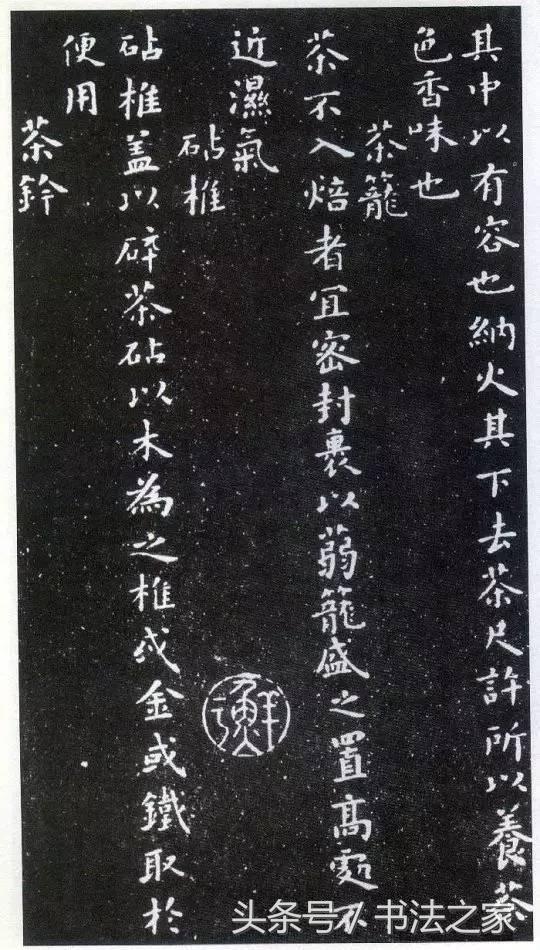 其中以有容也納火其下去茶尺許所以養茶
色香味也
茶籠
茶不入焙者宜密封裹以蒻籠盛之置髙處不
近濕氣
砧椎
砧椎盖以碎茶砧以木為之椎或金或鐵取於
便用
茶鈐
头条号/书法之家